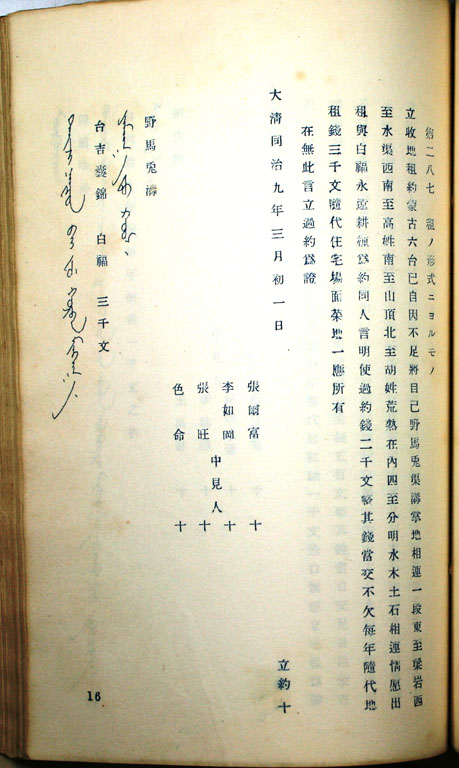 約二八七 租ノ形式ニヨルモノ
立收地租約蒙古六台已自因不足將自己野馬兎渠溝掌地相連一段東至梁岩西
至水渠西南至高姓南至山頂北至胡姓荒熟在內四至分明水木土石相連情愿出
租與白福永遠耕種爲約同人言明使過約錢二千文整其錢當交不欠每年隨代地
租錢三千文隨代住宅場面菜地一應所有
在無此言立過約爲證
大淸同治九年三月初一日
立約十
張爾富 十
李如岡 十
中見人
張旺 十
色命 十
野馬兎溝
台吉襄錦 白福 三千文
16